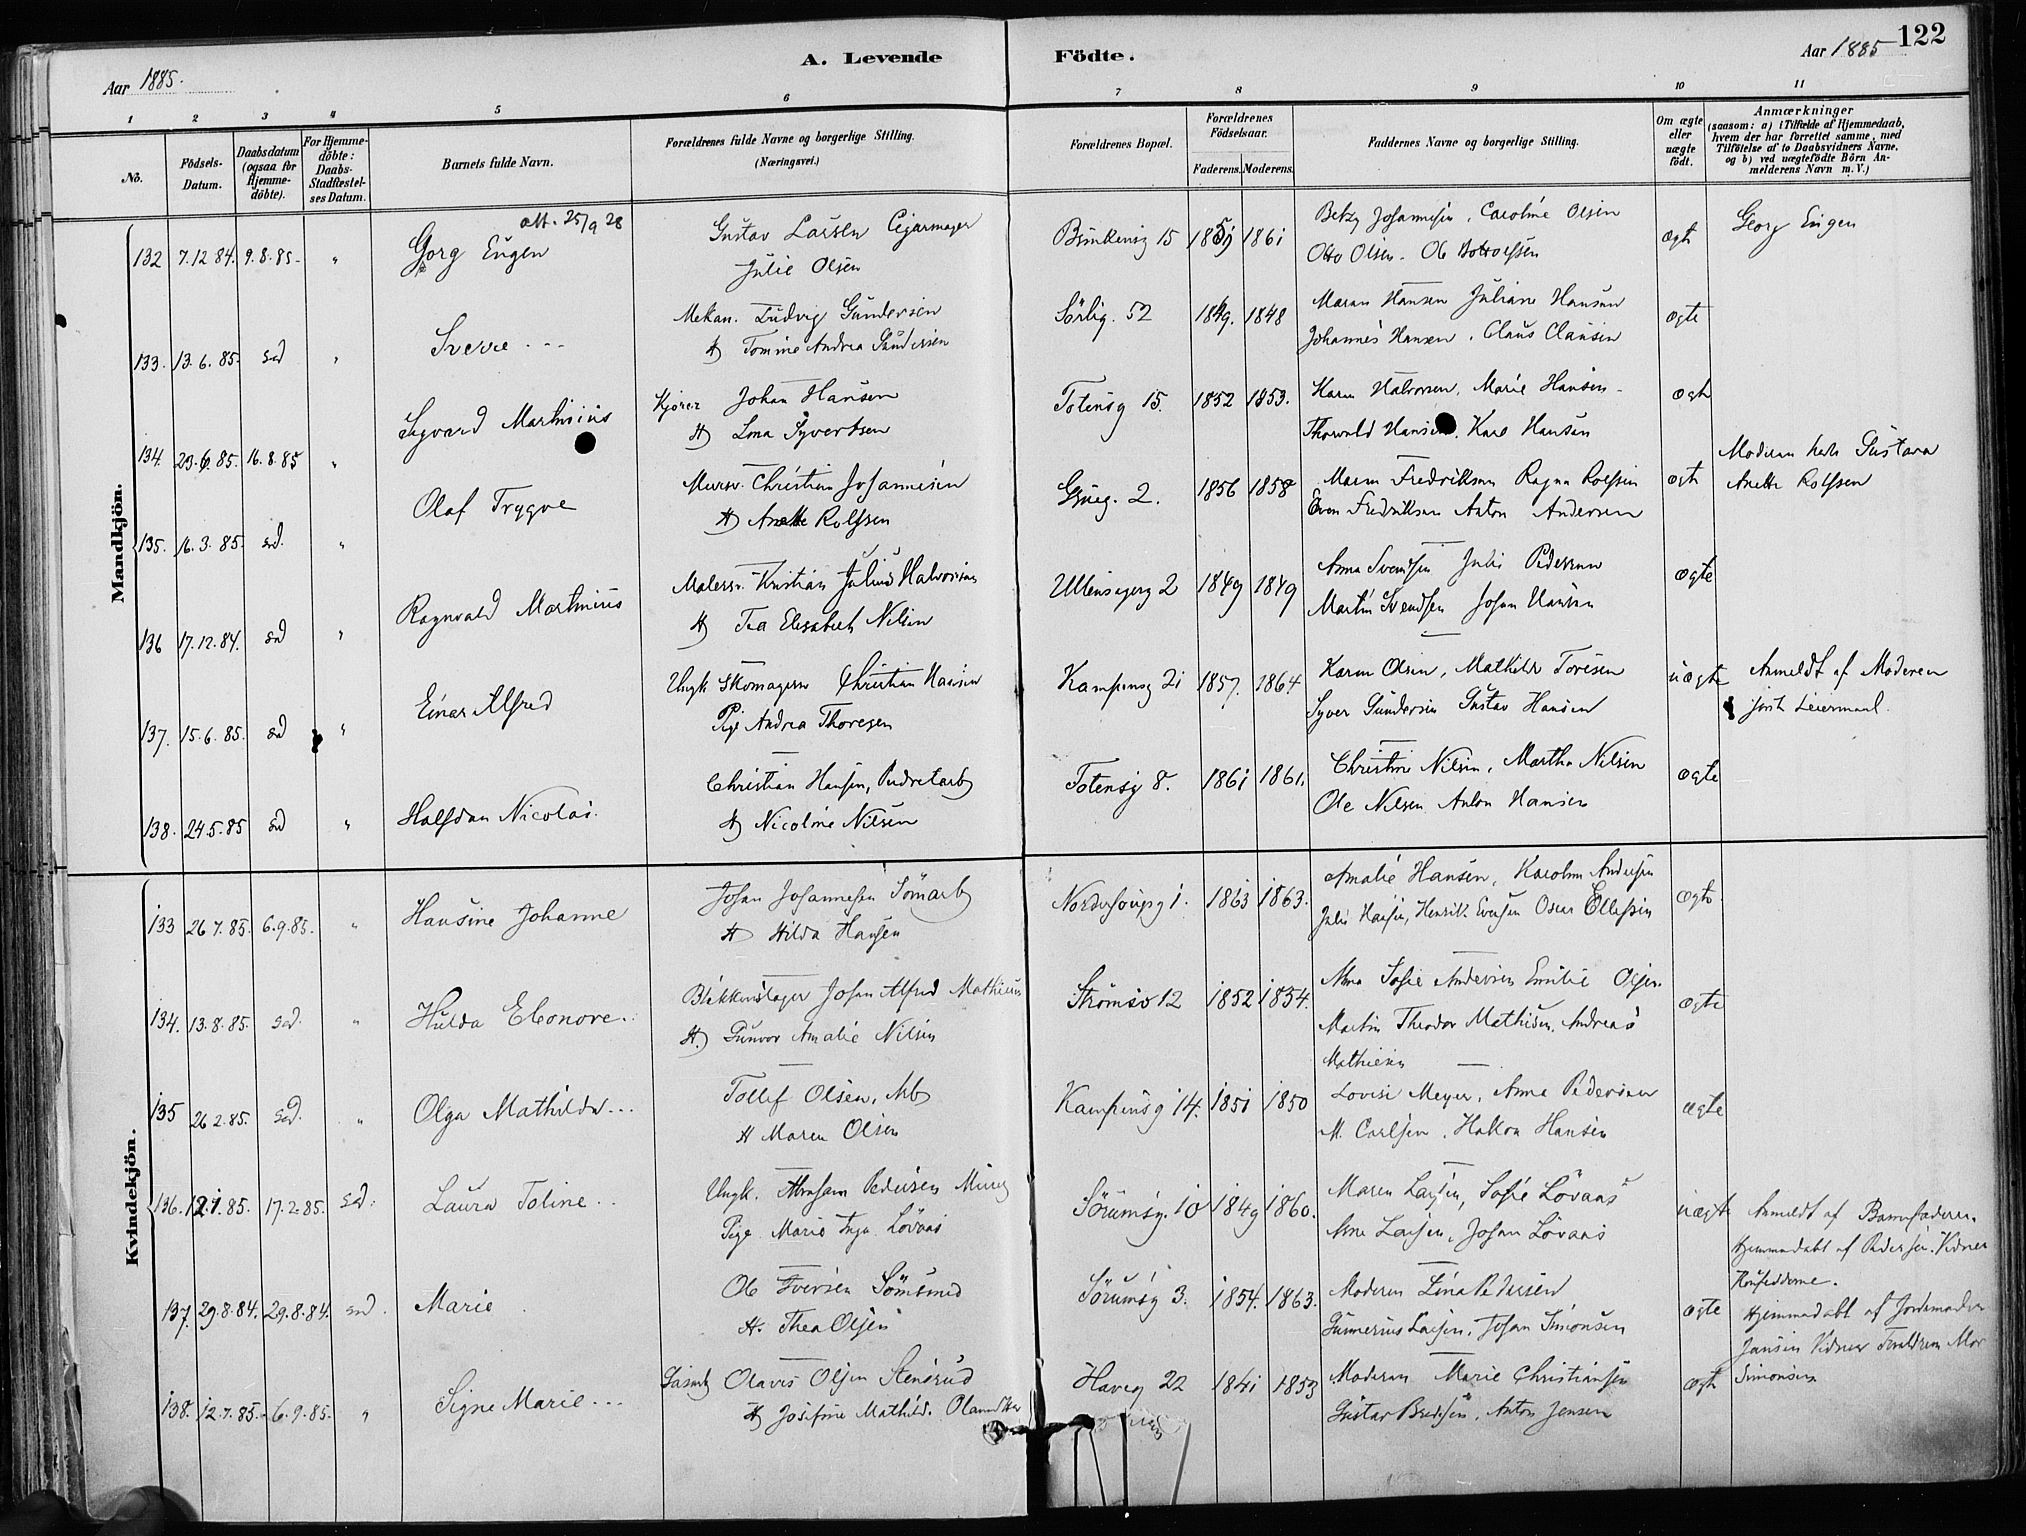 122
A. Levende Födte.
Aar 1885.
Aar 1885
1 2 3 4 5 6 7 8 9 10 11
No.
Födsels-Datum.
Daabsdatum (ogsaa for Hjemme-döbte).
For Hjemme-döbte: Daabs-Stadfæstel-ses Datum.
Barnets fulde Navn.
Forældrenes fulde Navne og borgerlige Stilling.
(Næringsvei.)
Forældrenes Bopæl.
Forældrenes Födselsaar.
Faderens. Moderens.
Faddernes Navne og borgerlige Stilling.
Om ægte eller uægte födt.
Anmærkninger
(saasom: a) i Tilfælde af Hjemmedaab, hvem der har forrettet samme, med Tilföielse af to Daabsvidners Navne, og b) ved uægtefödte Börn An-melderens Navn m. V.)
Mandkjön.
att. 25/9 28
132 7.12 84. 9.8.85. " Gorg Eugen
Gustav Larsen Cigarmager
Julie Olsen
15 1859 1861
Betzy Johannesen, Caroline Olsen
Otto Olsen.
ægte
Georg Eugen
133. 13.6.85. sad " Sverre
Mekan. Ludvig Gundersen
H Tomine Andrea Gundersen
Sörlig. 52 1849. 1848
Maren Hansen Juliane Hansen
Johannes Hansen, Claus Clausen
ægte
134. 23.6.85. 16.8.85 " Sigvard Martinius
Kjörer Johan Hansen
H Lina Syvertsen
Totensg 15. 1852 1853.
Karen Halvorsen, Marie Hansen
Thorvald Hansen, Karl Hansen
ægte
135. 16.3.85. sad. " Olaf Trygve
Murer. Christian Johannesen
H Anette Rolfsen
2. 1856 1858
Maren Fredriksen Ragna Rolfsen
Even Fredriksen Anton Andersen
ægte
Moderen heder Gustava
Anette Rolfsen
136 17.12.84. sad " Ragnvald Martinius
Malersv. Kristian Julius Halvorsen
H Tea Elisabeth Nilsen
Ullensagerg 2 1849 1849
Anna Svendsen Julie Pedersen
Martin Svendsen Johan Hansen
ægte
137. 15.6.85. sad " Einar Alfred
Ungk. Skomagersv Christian Hansen
Pige Andrea Thoresen
Kampensg 21 1857. 1864
Karen Olsen, Mathilde Toresen
Syver Gundersen Gustav Hansen
uægte
Anmeldt af Moderen
Leiermaal.
138. 24.5.85 sad " Halfdan Nicolai.
Christian Hansen, Pudretarb
H Nicoline Nilsen
Totensg 8. 1861 1861.
Christine Nilsen, Martha Nilsen
Ole Nilsen Anton Hansen
ægte
Kvindekjön.
133 26.7.85. 6.9.85. " Hansine Johanne
Johan Johannesen Tömarb
H Hilda Hansen
1. 1863 1863.
Amalie Hansen, Karoline Andersen
Julie Hansen, Henrik Evensen Oscar Ellefsen
ægte
134. 13.8.85. sad. " Hulda Eleonore.
Blikkenslager Johan Alfred Mathiesen
H. Gunvor Amalie Nilsen
Strömsv 12 1852 1854.
Anna Sofie Andersen Emilie Olsen.
Martin Theodor Mathisen, Andreas
Mathiesen
ægte
135 26.2.85. sad. " Olga Mathilde
Tollef Olsen, Arb
H Maren Olsen
Kampensg 14. 1851 1850
Lovise Meyer, Anna Pedersen
M. Carlsen, Hakon Hansen
ægte
136. 12.1.85. 17.2.85. sad. Laura Toline
Ungk. Abraham Pedersen Murer
Pige Marie Inga Lövaas
Sörumsg. 10 1849 1860.
Maren Larsen, Sofie Lövaas
Arne Larsen, Johan Lövaas
uægte
Anmeldt af Barnefaderen.
Hjemmedöbt af Pedersen. Vidner
137. 29.8.84. 29.8.84. sad. Marie
Ole Iversen Tömmermd
H. Thea Olsen
Sörumsg 3. 1854. 1863.
Moderen Lina Pedersen
Gunnerius Larsen, Johan Simonsen
ægte
Hjemmedöbt af Jordemoder
Jansen Vidner Forældrene Mor
Simonsen
138. 12.7.85. 6.9.85. " Signe Marie
Olaves Olsen Stensrud
H Josefine Mathild. Olavesdtter
Haveg 22 1841 1853
Moderen Marie Christiansen
Gustav Bredesen, Anton Jensen
ægte